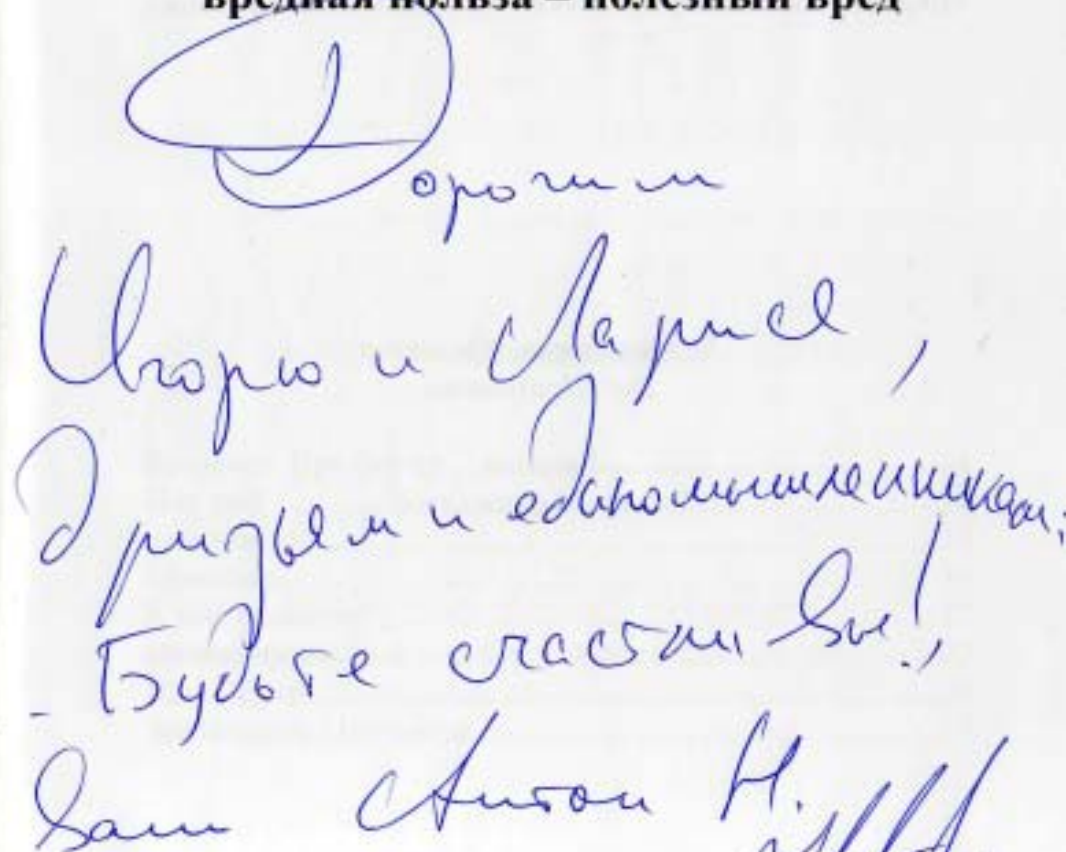 вредная польза – полезный вред
Дорогим
Игорю и Ларисе,
друзьям и единомышленникам:
- Будьте счастливы!,
Ваш Антон Н.